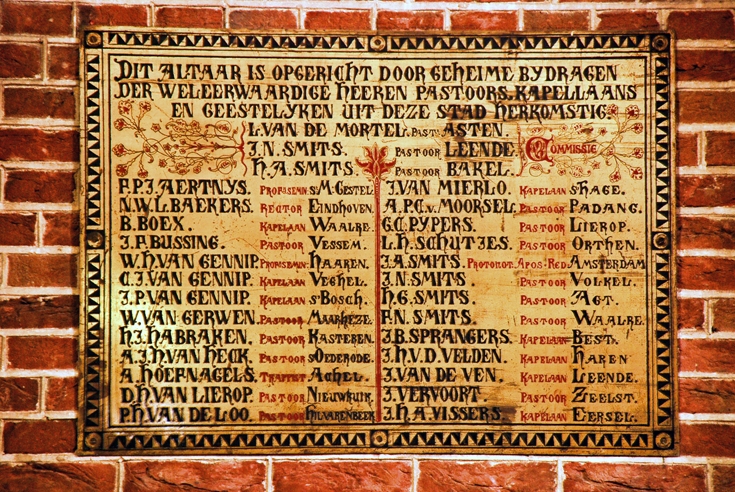 DIT ALTAAR IS OPGERICHT DOOR GEHEIME BYDRAGEN
DER WELEERWAARDIGE HEEREN PASTOORS, KAPELLAANS
EN GEESTELYKEN UIT DEZE STAD HERKOMSTIG.
L. VAN DE MORTEL. PAST. ASTEN.
J.N. SMITS. PASTOOR LEENDE. COMMISSIE
H.A. SMITS. PASTOOR BAKEL.
F.P.J. AERTNYS. PROF. SEMIN. ST. M. GESTEL
N.W.L. BAEKERS. RECTOR EINDHOVEN.
B. BOEX. KAPELAAN WAALRE.
J.F. BUSSING. PASTOOR VESSEM.
W.H. VAN GENNIP. PROF. SEMIN. HAAREN.
C.J. VAN GENNIP. KAPELAAN VEGHEL.
J.P. VAN GENNIP. KAPELAAN S'BOSCH.
W. VAN GERWEN. PASTOOR MAARHEZE.
H.J. HABRAKEN. PASTOOR KASTEREN.
A.J.H. VAN HECK. PASTOOR ST. OEDERODE.
A. HOEFNAGELS. TRAPPIST ACHEL.
D.H. VAN LIEROP. PASTOOR NIEUWKUIK.
P.H. VAN DE LOO. PASTOOR HILVARENBEEK
J. VAN MIERLO. KAPELAAN S'HAGE.
A.P.C. V. MOORSEL. PASTOOR PADANG.
G.C. PYPERS. PASTOOR LIEROP.
L.H. SCHUTJES. PASTOOR ORTHEN.
J.A. SMITS. PROTONOT. APOS. RED. AMSTERDAM
J.N. SMITS. PASTOOR VOLKEL.
H.G. SMITS. PASTOOR JAGT.
F.N. SMITS. PASTOOR WAALRE.
J.B. SPRANGERS. KAPELAAN BEST.
J.H.V.D. VELDEN. KAPELAAN HAREN
J. VAN DE VEN. KAPELAAN LEENDE.
J. VERVOORT. PASTOOR ZEELST.
J.H.A. VISSERS. KAPELAAN EERSEL.